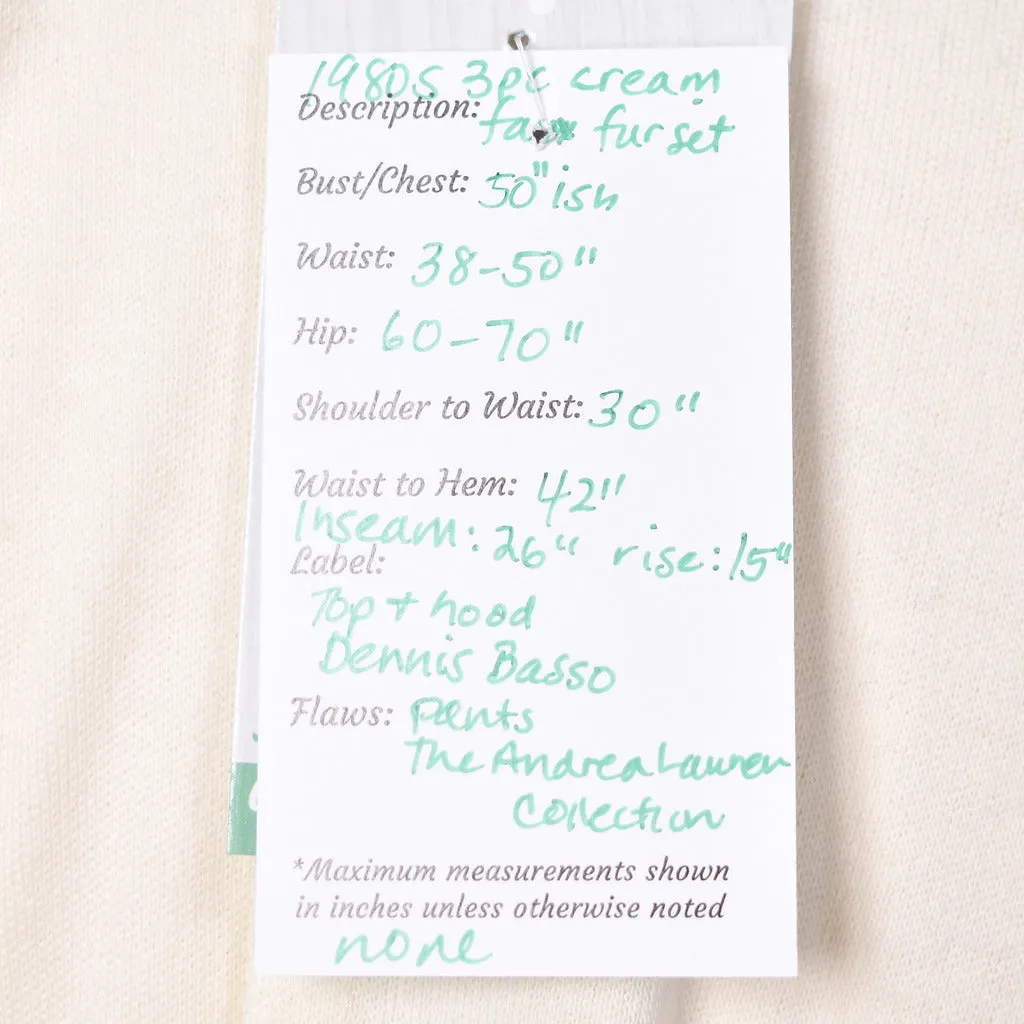 1980s 3pc cream
Description: faux fur set
Bust/Chest: 50"ish
Waist: 38-50"
Hip: 60-70"
Shoulder to Waist: 30"
Waist to Hem: 42"
Inseam: 26" rise: 15"
Label:
Top + hood
Dennis Basso
Flaws: pants
The Andrea Lauren
Collection
*Maximum measurements shown
in inches unless otherwise noted
none